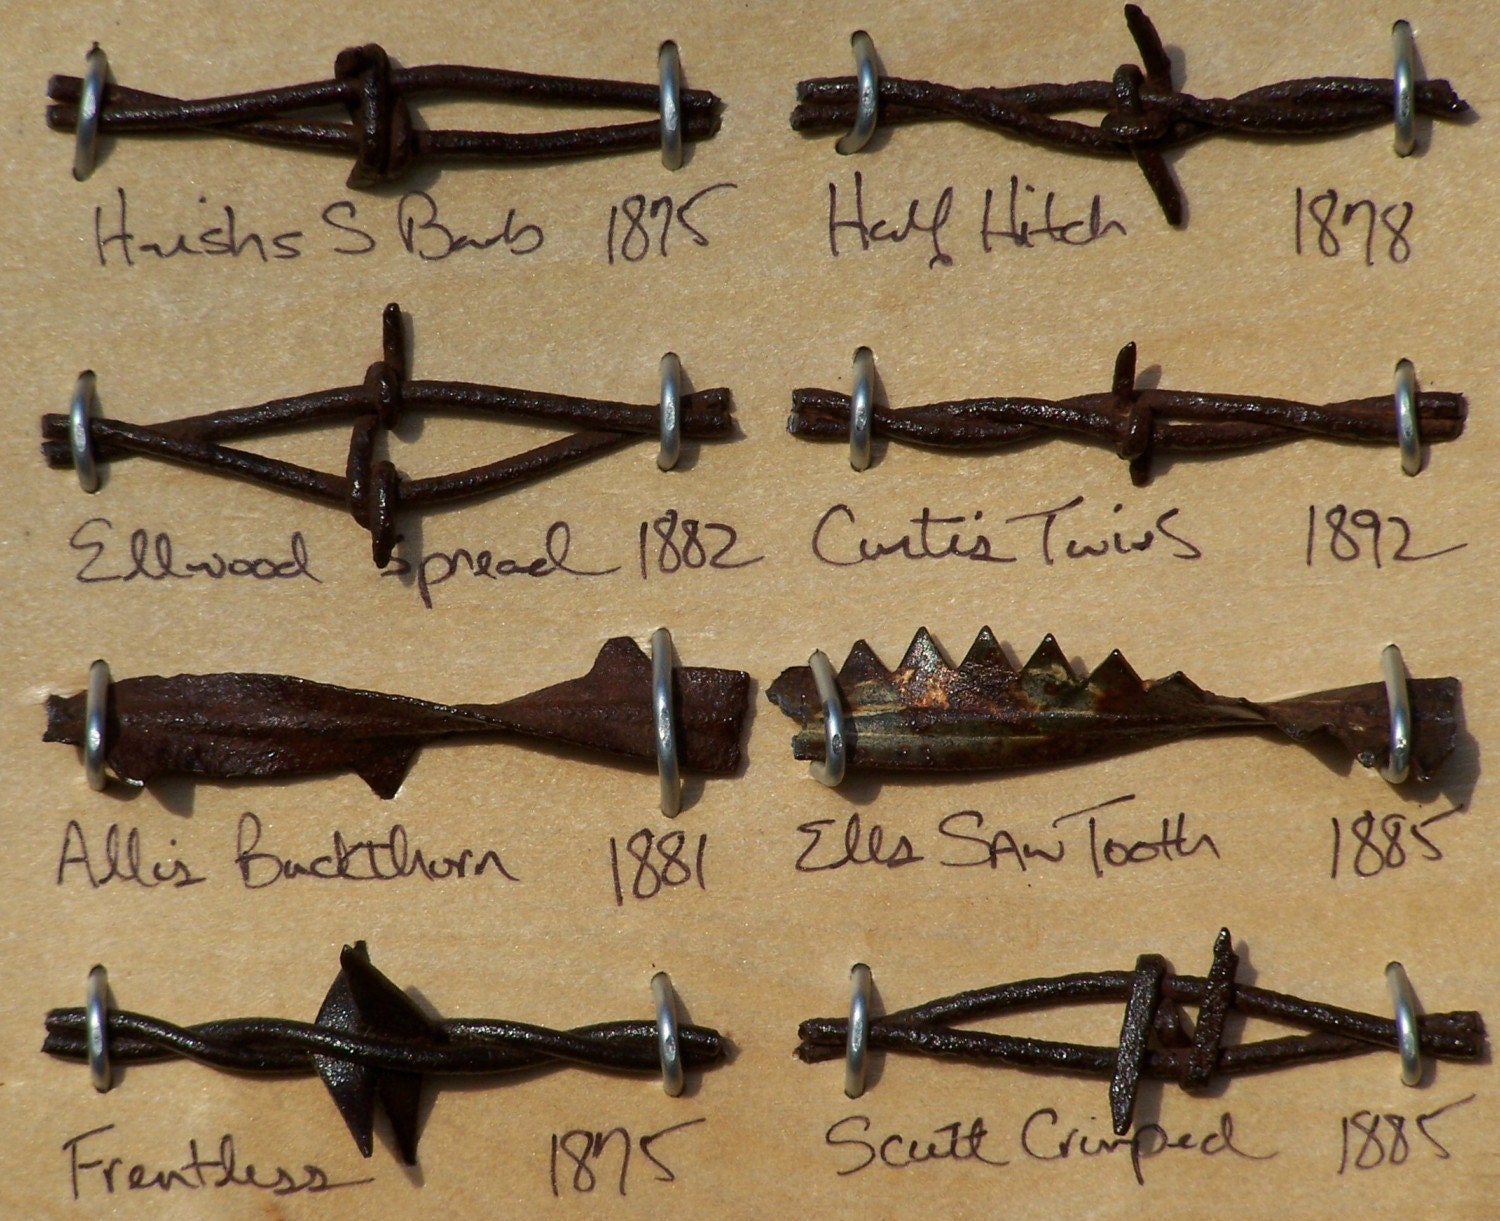 Haishs S Barb 1875
Half Hitch 1878
Ellwood Spread 1882
Curtis Twins 1892
Allis Buckthorn 1881
Ells Saw Tooth 1885
Frentless 1875
Scutt Crimped 1885